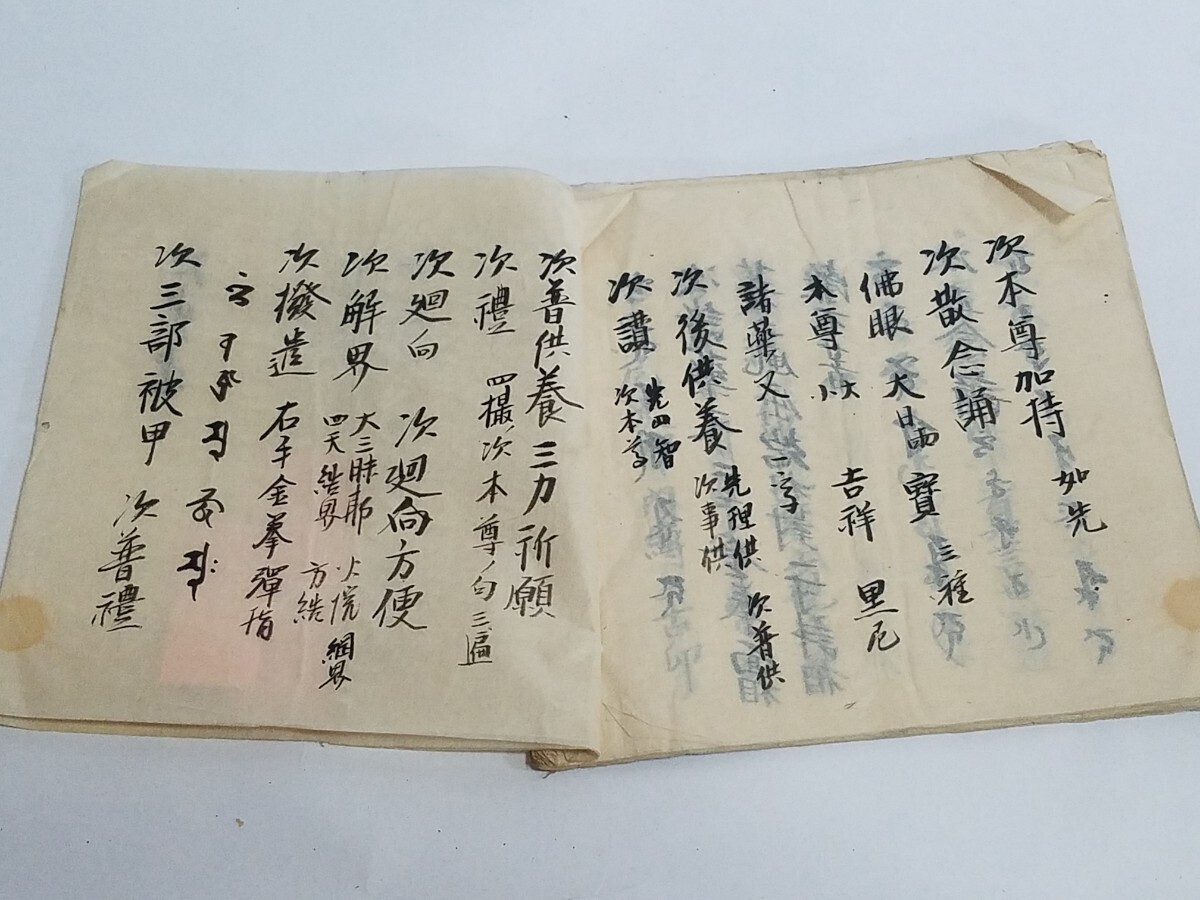 次本尊加持 如先
次散念誦
佛眼 大日両 寶 三種
本尊 大小 吉祥 里尼
諸藥叉 一字
次後供養 先理供 次事供 次普供
次讃 先四智 次本尊
次普供養三力祈願
次禮 四攝 次本尊ノ句三遍
次廻向 次廻向方便
次解界 大三昧耶 火院 網界 四天結界 方結
次撥遣 右手金拳彈指
次三部被甲 次普禮